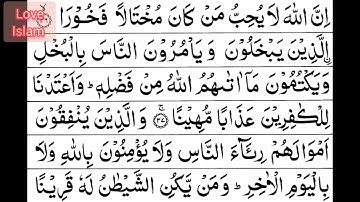 Love
Islam
اِنَّ اللّٰهَ لَا یُحِبُّ مَنْ كَانَ مُخْتَالًا فَخُوْرَا
الَّذِیْنَ یَبْخَلُوْنَ وَ یَاْمُرُوْنَ النَّاسَ بِالْبُخْلِ
وَیَكْتُمُوْنَ مَاۤ اٰتٰىهُمُ اللّٰهُ مِنْ فَضْلِهٖ ؕ وَاَعْتَدْنَا
لِلْكٰفِرِیْنَ عَذَابًا مُّهِیْنًا ۚ ﴿۳۷﴾ وَالَّذِیْنَ یُنْفِقُوْنَ
اَمْوَالَهُمْ رِئَآءَ النَّاسِ وَلَا یُؤْمِنُوْنَ بِاللّٰهِ وَلَا
بِالْیَوْمِ الْاٰخِرِ ؕ وَمَنْ یَّكُنِ الشَّیْطٰنُ لَهٗ قَرِیْنًا